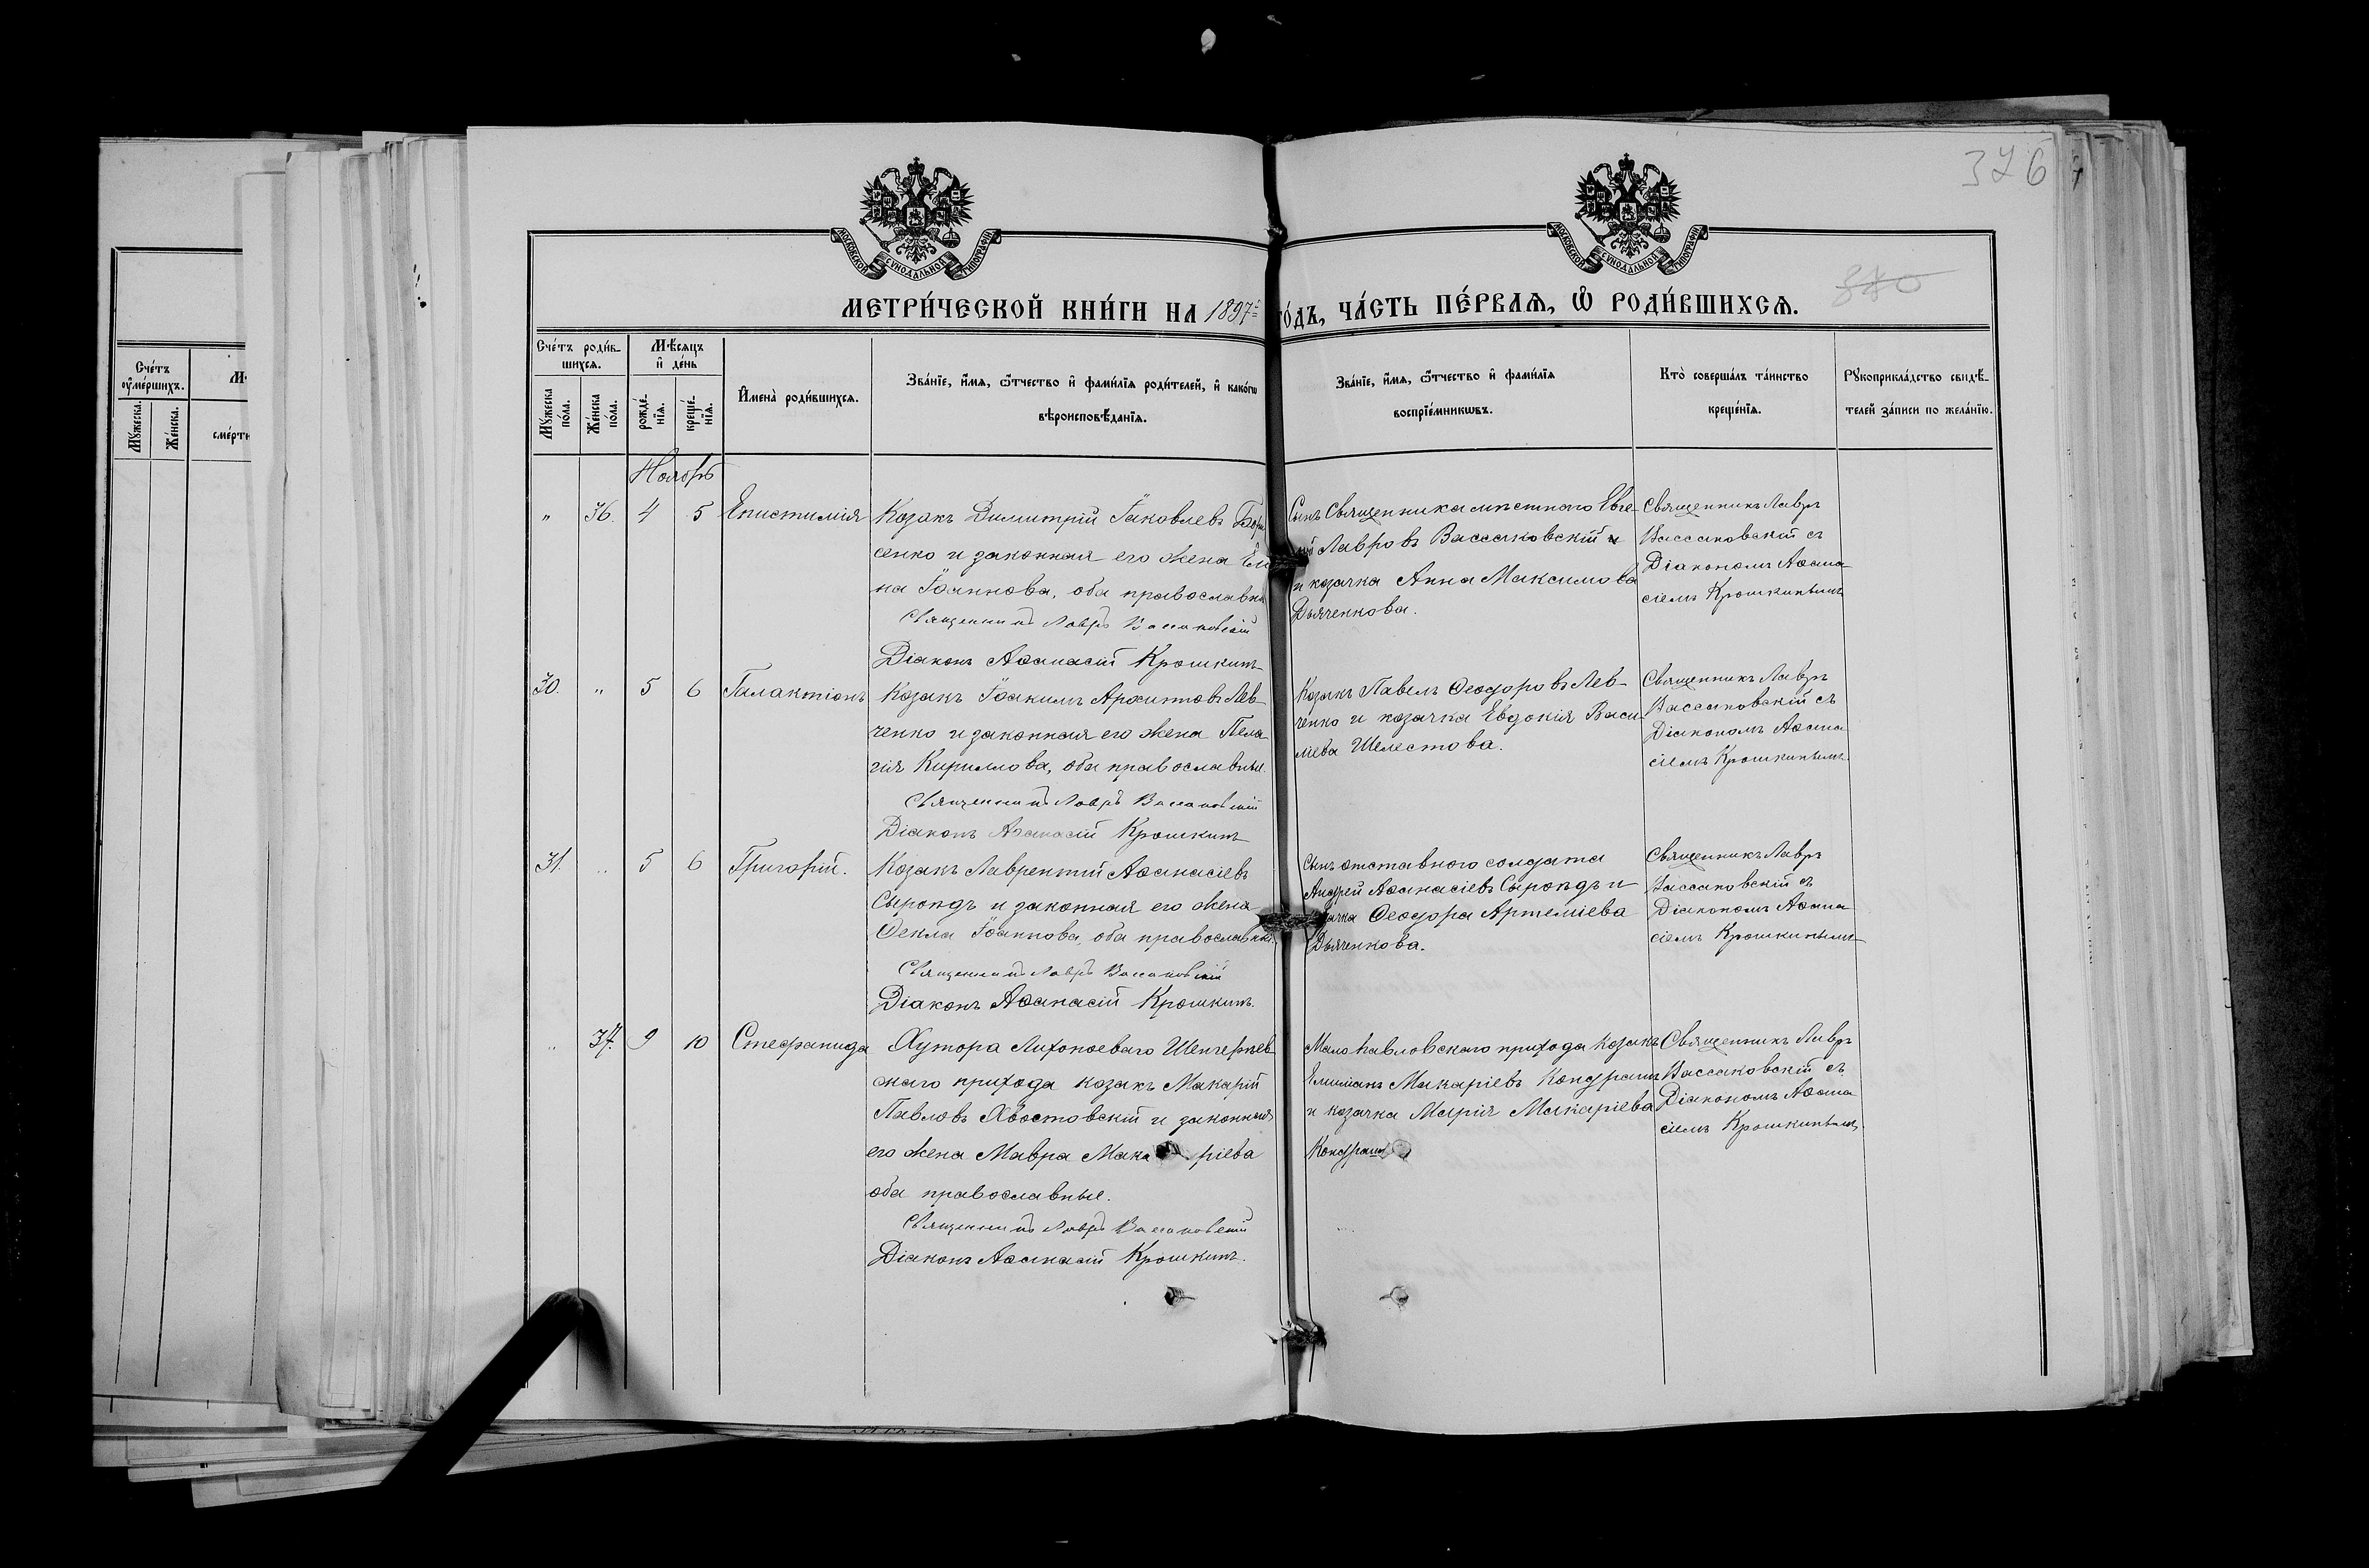 376
МОСКОВСКОЙ СУНОДАЛЬНОЙ ТИПОГРАФІИ
МОСКОВСКОЙ СУНОДАЛЬНОЙ ТИПОГРАФІИ
880
МЕТРИ́ЧЕСКОЙ КНИ́ГИ НА 1897 ГО́ДЪ, ЧА́СТЬ ПЕ́РВАѦ, Ѿ РОДИ́ВШИХСѦ.
Сче́тъ
оу҆ме́ршихъ.
Мꙋ́жеска.
Же́нска.
сме́рти
Сче́тъ роди́в-
шихсѧ.
Мꙋ́жеска
по́ла.
Же́нска
по́ла.
Мѣ́сѧцъ
и҆ де́нь
рожде́-
нїѧ.
креще́-
нїѧ.
И҆мена̀ роди́вшихсѧ.
Зва́нїе, и҆́мѧ, ѻ҆́тчество и҆ фами́лїѧ роди́телей, и҆ како́гѡ
вѣроисповѣ́данїѧ.
Зва́нїе, и҆́мѧ, ѻ҆́тчество и҆ фами́лїѧ
воспрїе́мникѡвъ.
Кто̀ соверша́лъ та́инство
креще́нїѧ.
Рꙋкоприкла́дство свидѣ́-
телей за́писи по жела́нїю.
Ноябрь
" 36. 4 5 Епистимія
Козакъ Димитрій Іаковлевъ Бори
сенко и законная его жена Еле
на Іоаннова, оба православны
Священникъ Лавръ Вассаковскій
Діаконъ Аѳанасій Крошкинъ
Сынъ Священника мѣстнаго Евге-
ній Лавровъ Вассаковскій и
и козачка Анна Максимова
Дьяченкова.
Священникъ Лавръ
Вассаковскій съ
Діакономъ Аѳана
сіемъ Крошкинымъ
30. " 5 6 Галактіонъ
Козакъ Іоакимъ Архиповъ Лев-
ченко и законная его жена Пела
гія Кириллова, оба православные.
Священникъ Лавръ Вассаковскій
Діаконъ Аѳанасій Крошкинъ
Козакъ Павелъ Ѳеодоровъ Лев-
ченко и козачка Евдокія Васи
ліева Шелестова.
Священникъ Лавръ
Вассаковскій съ
Діакономъ Аѳана
сіемъ Крошкинымъ.
31. " 5 6 Григорій.
Козакъ Лаврентій Аѳанасіевъ
Сыроѣдъ и законная его жена
Ѳекла Іоаннова, оба православны.
Священникъ Лавръ Вассаковскій
Діаконъ Аѳанасій Крошкинъ.
Сынъ отставного солдата
Андрей Аѳанасіевъ Сыроѣдъ и
козачка Ѳеодора Артеміева
Дьяченкова.
Священникъ Лавръ
Вассаковскій съ
Діакономъ Аѳана
сіемъ Крошкинымъ
" 37. 9 10 Стефанида
Хутора Лихопоеваго
скаго прихода козакъ Макарій
Павловъ Хвостовскій и законная
его жена Мавра Мака ріева
оба православные.
Священникъ Лавръ Вассаковскій
Діаконъ Аѳанасій Крошкинъ.
Мало Павловскаго прихода козакъ
Емиліанъ Макаріевъ Кондрашъ
и козачка Марія Макаріева
Кондрашъ
Священникъ Лавръ
Вассаковскій съ
Діакономъ Аѳана
сіемъ Крошкинымъ.